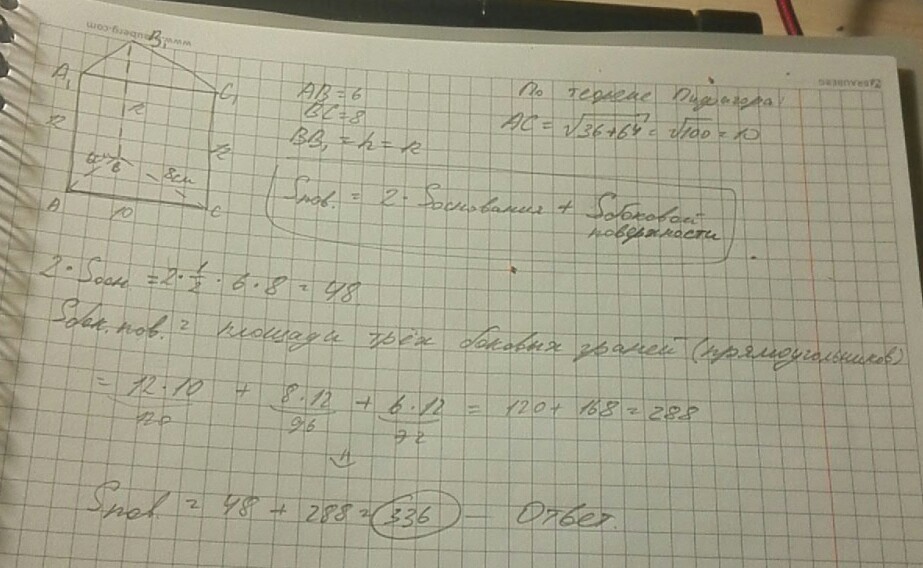 B₁
A₁
C₁
12
12
12
6см
B
8см
A
10
C
AB = 6
BC = 8
BB₁ = h = 12
По теореме Пифагора:
AC = √36+64 = √100 = 10
Sпов. = 2 · Sоснования + Sбоковой
поверхности
2 · Sосн = 2 · 1/2 · 6 · 8 = 48
Sбок.пов. = площади трёх боковых граней (прямоугольников)
= 12 · 10 + 8 · 12 + 6 · 12 = 120 + 168 = 288
120 96 72
⇓
Sпов. = 48 + 288 = 336 — Ответ.